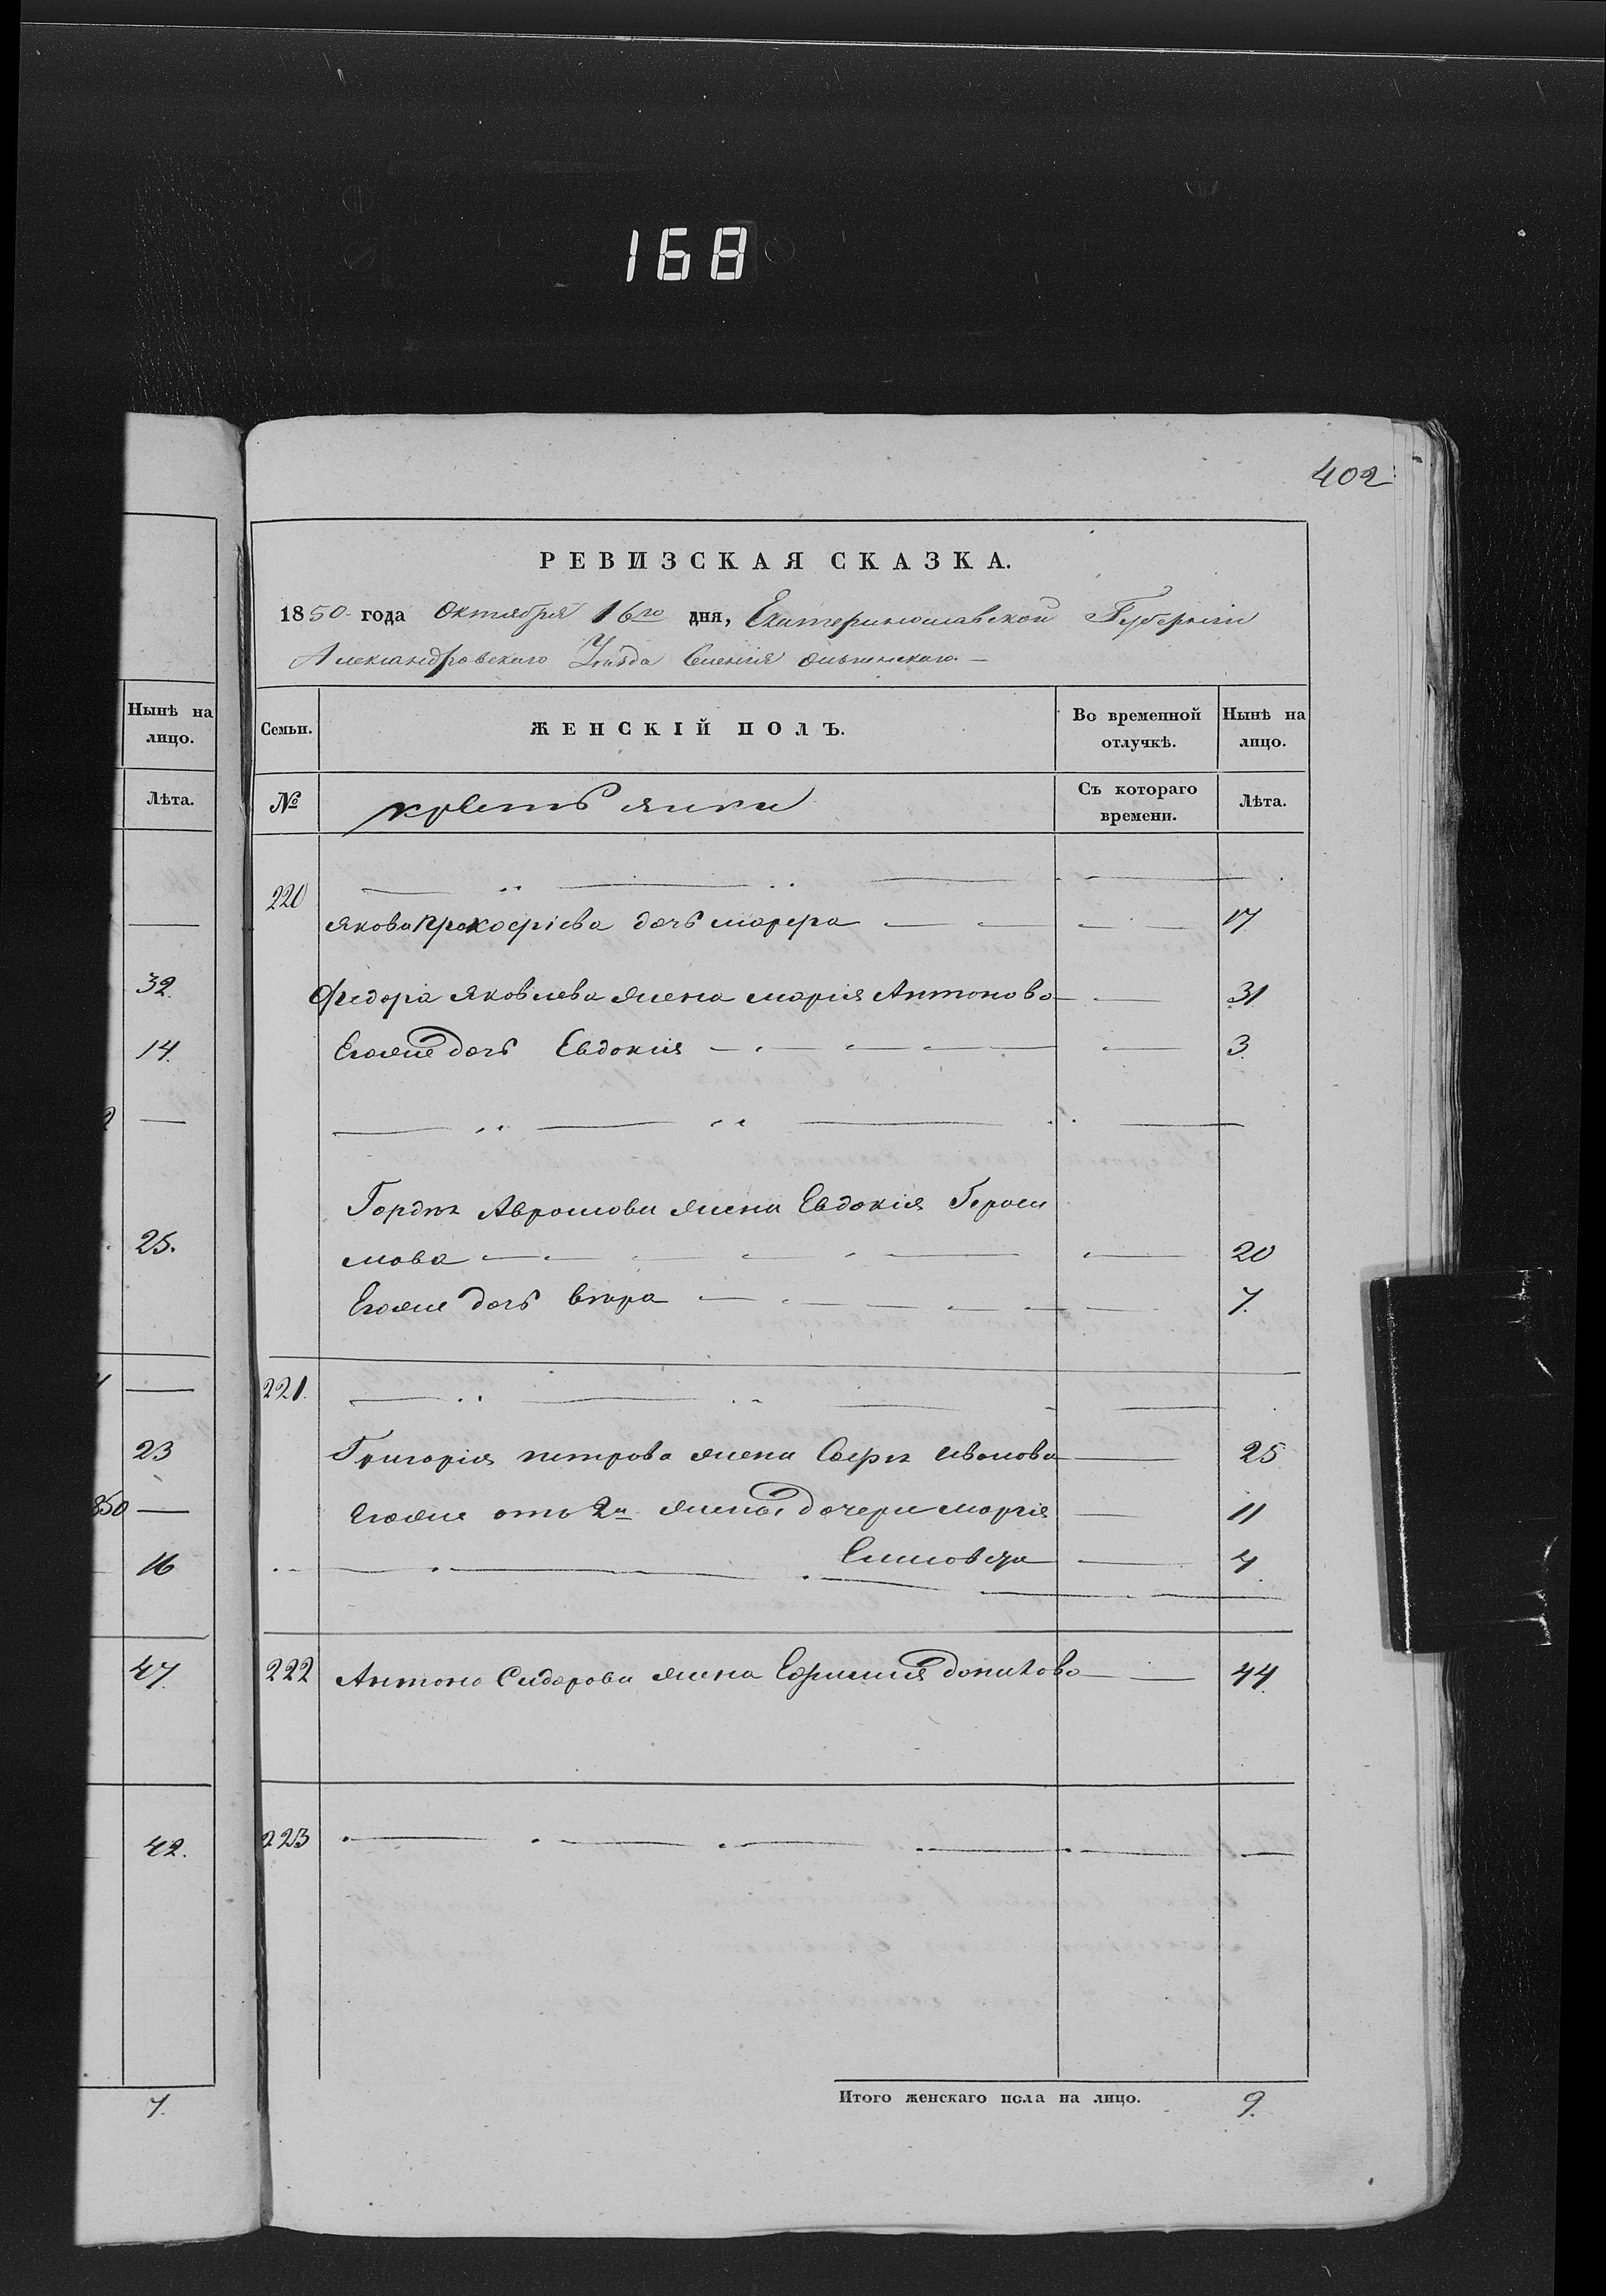 168
402
РЕВИЗСКАЯ СКАЗКА.
1850 года Октября 16го дня, Екатеринославской Губернии
Александровского Уѣзда Селения
Нынѣ на лицо.
Лѣта.
32.
14.
25.
23
850
16
47.
42.
7.
Семьи.
ЖЕНСКІЙ ПОЛЪ.
Во временной отлучкѣ.
Нынѣ на лицо.
№
крестьянки
Съ котораго времени.
Лѣта.
220
Якова Прокофіева дочь марфа 17
Федора Яковлева жена марія Антонова 31
Егоже дочь Евдокия 3
Гордѣя Аврамова жена Евдокія Гераси
мова 20
Егоже дочь вѣра 7.
221.
Григорія петрова жена Иванова 25
Егоже отъ 2й жены дочери марія 11
222 Антона Сидорова жена Ефимия 44
223
Итого женскаго пола на лицо. 9.